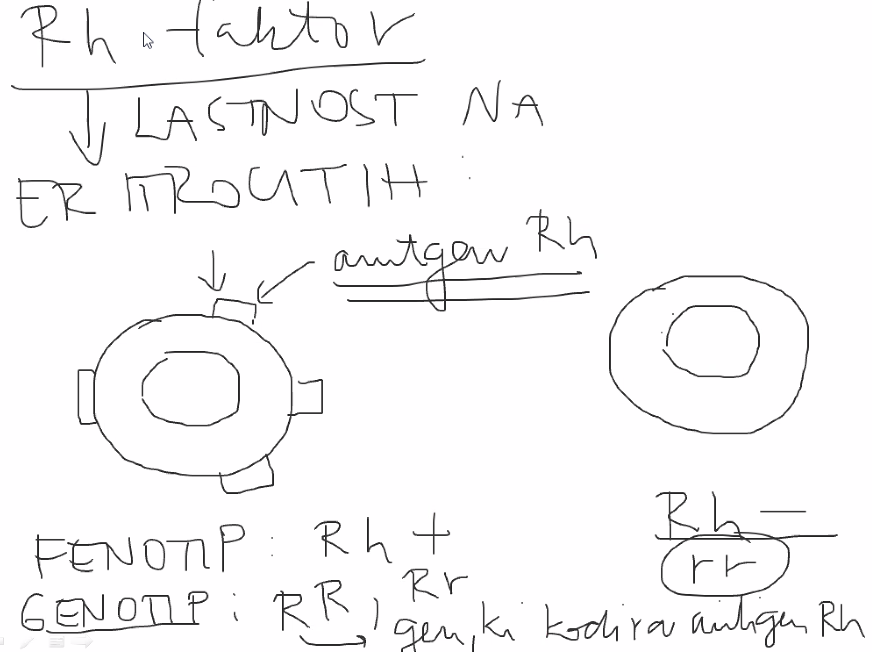 Rh-faktor
LASTNOST NA
ERITROCITIH
antigen Rh
FENOTIP: Rh + Rh -
GENOTIP: RR, Rr rr
gen, ki kodira antigen Rh